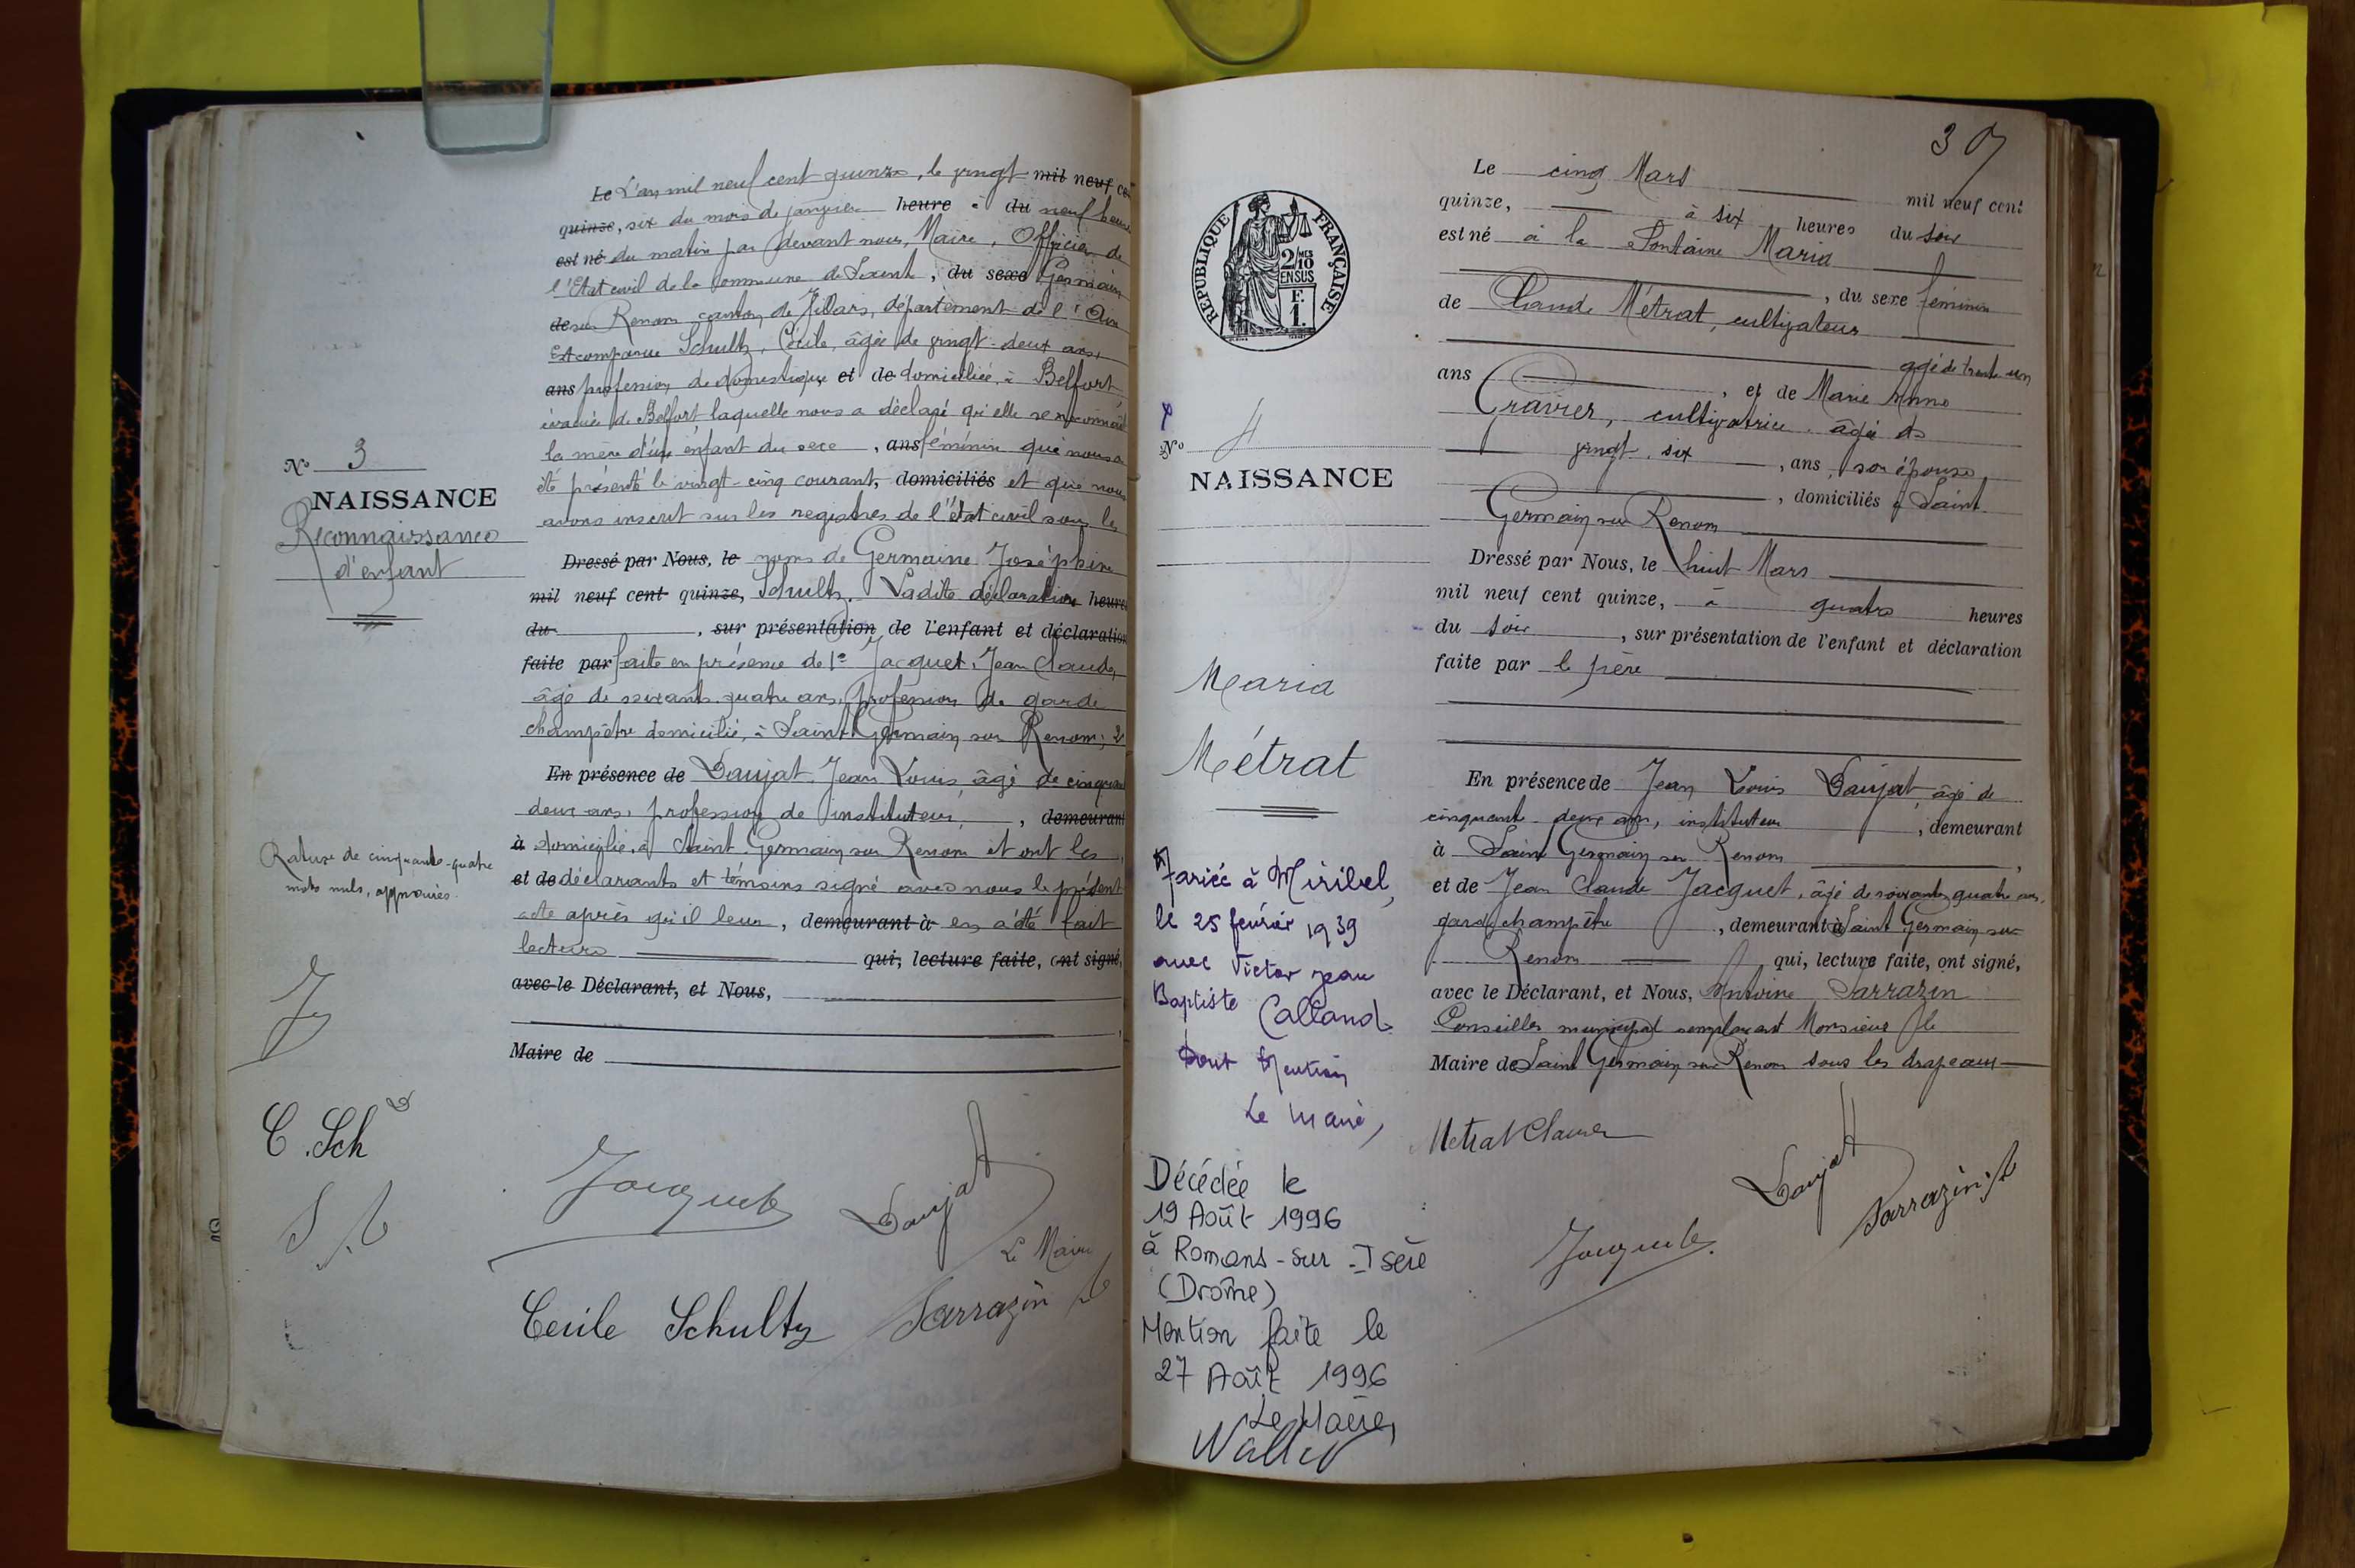 N° 3
NAISSANCE
Reconnaissance
d'enfant
Rature de cinquante-quatre
mots nuls, approuvés.
J
C. Sch
Le L'an mil neuf cent quinze, le vingt mil neuf cen
quinze, six du mois de janvier heure à du neuf heures
est né du matin par devant nous, Maire, Officier de
l'Etat civil de la commune de Saint, du sexe Germain
de sur Renom canton de Villars, département de l'Ain
Est comparue Schultz, Cécile, âgée de vingt-deux ans,
ans profession de domestique et de domiciliée à Belfort,
évacuée de Belfort laquelle nous a déclaré qu'elle se reconnaît
la mère d'un enfant du sexe, ans féminin qui nous a
été présenté le vingt-cinq courant, domiciliés et que nous
avons inscrit sur les registres de l'état civil sous les
Dressé par Nous, le noms de Germaine Joséphine
mil neuf cent quinze, Schultz. Ladite déclaration heures
du , sur présentation de l'enfant et déclaration
faite par faite en présence de 1° Jacquet, Jean Claude,
âgé de soixante quatre ans, profession de garde
champêtre domicilié, à Saint Germain sur Renom; 2
En présence de Daujat, Jean Louis, âgé de cinquan
deux ans, profession de instituteur, , demeurant
à domicilié à Saint Germain sur Renom et ont les
et de déclarants et témoins signé avec nous le présent
acte après qu'il leur, demeurant à en a été fait
lecture qui, lecture faite, ont signé,
avec le Déclarant, et Nous,
Maire de
Jacquet
Daujat
Le Maire
Cecile Schultz
Sarrazin
307
REPUBLIQUE FRANÇAISE
2/10 MES
EN SUS
F.
1.
N° 4
NAISSANCE
Maria
Métrat
Mariée à Miribel,
le 25 février 1939
avec Victor Jean
Baptiste Calland
Dont Mention
Le Maire,
Décédée le
19 Août 1996
à Romans-sur-Isère
(Drôme)
Mention faite le
27 Août 1996
Le Maire,
Le cinq Mars mil neuf cent
quinze, à six heures du soir
est né à la Fontaine Maria
, du sexe féminin
de Claude Métrat, cultivateur
agé de trente un
ans , et de Marie Anne
Gravier, cultivatrice âgé de
vingt six , ans, son épouse
, domiciliés à Saint
Germain sur Renom
Dressé par Nous, le huit Mars
mil neuf cent quinze, à quatre heures
du soir , sur présentation de l'enfant et déclaration
faite par le père
En présence de Jean Louis Daujat, âgé de
cinquante deux ans, instituteur , demeurant
à Saint Germain sur Renom ,
et de Jean Claude Jacquet, âgé de soixante quatre ans,
garde champêtre , demeurant à Saint Germain sur
Renom qui, lecture faite, ont signé,
avec le Déclarant, et Nous, Antoine Sarrazin
Conseiller municipal remplaçant Monsieur le
Maire de Saint Germain sur Renom sous les drapeaux
Metrat Claude
Daujat
Sarrazin
Jacquet